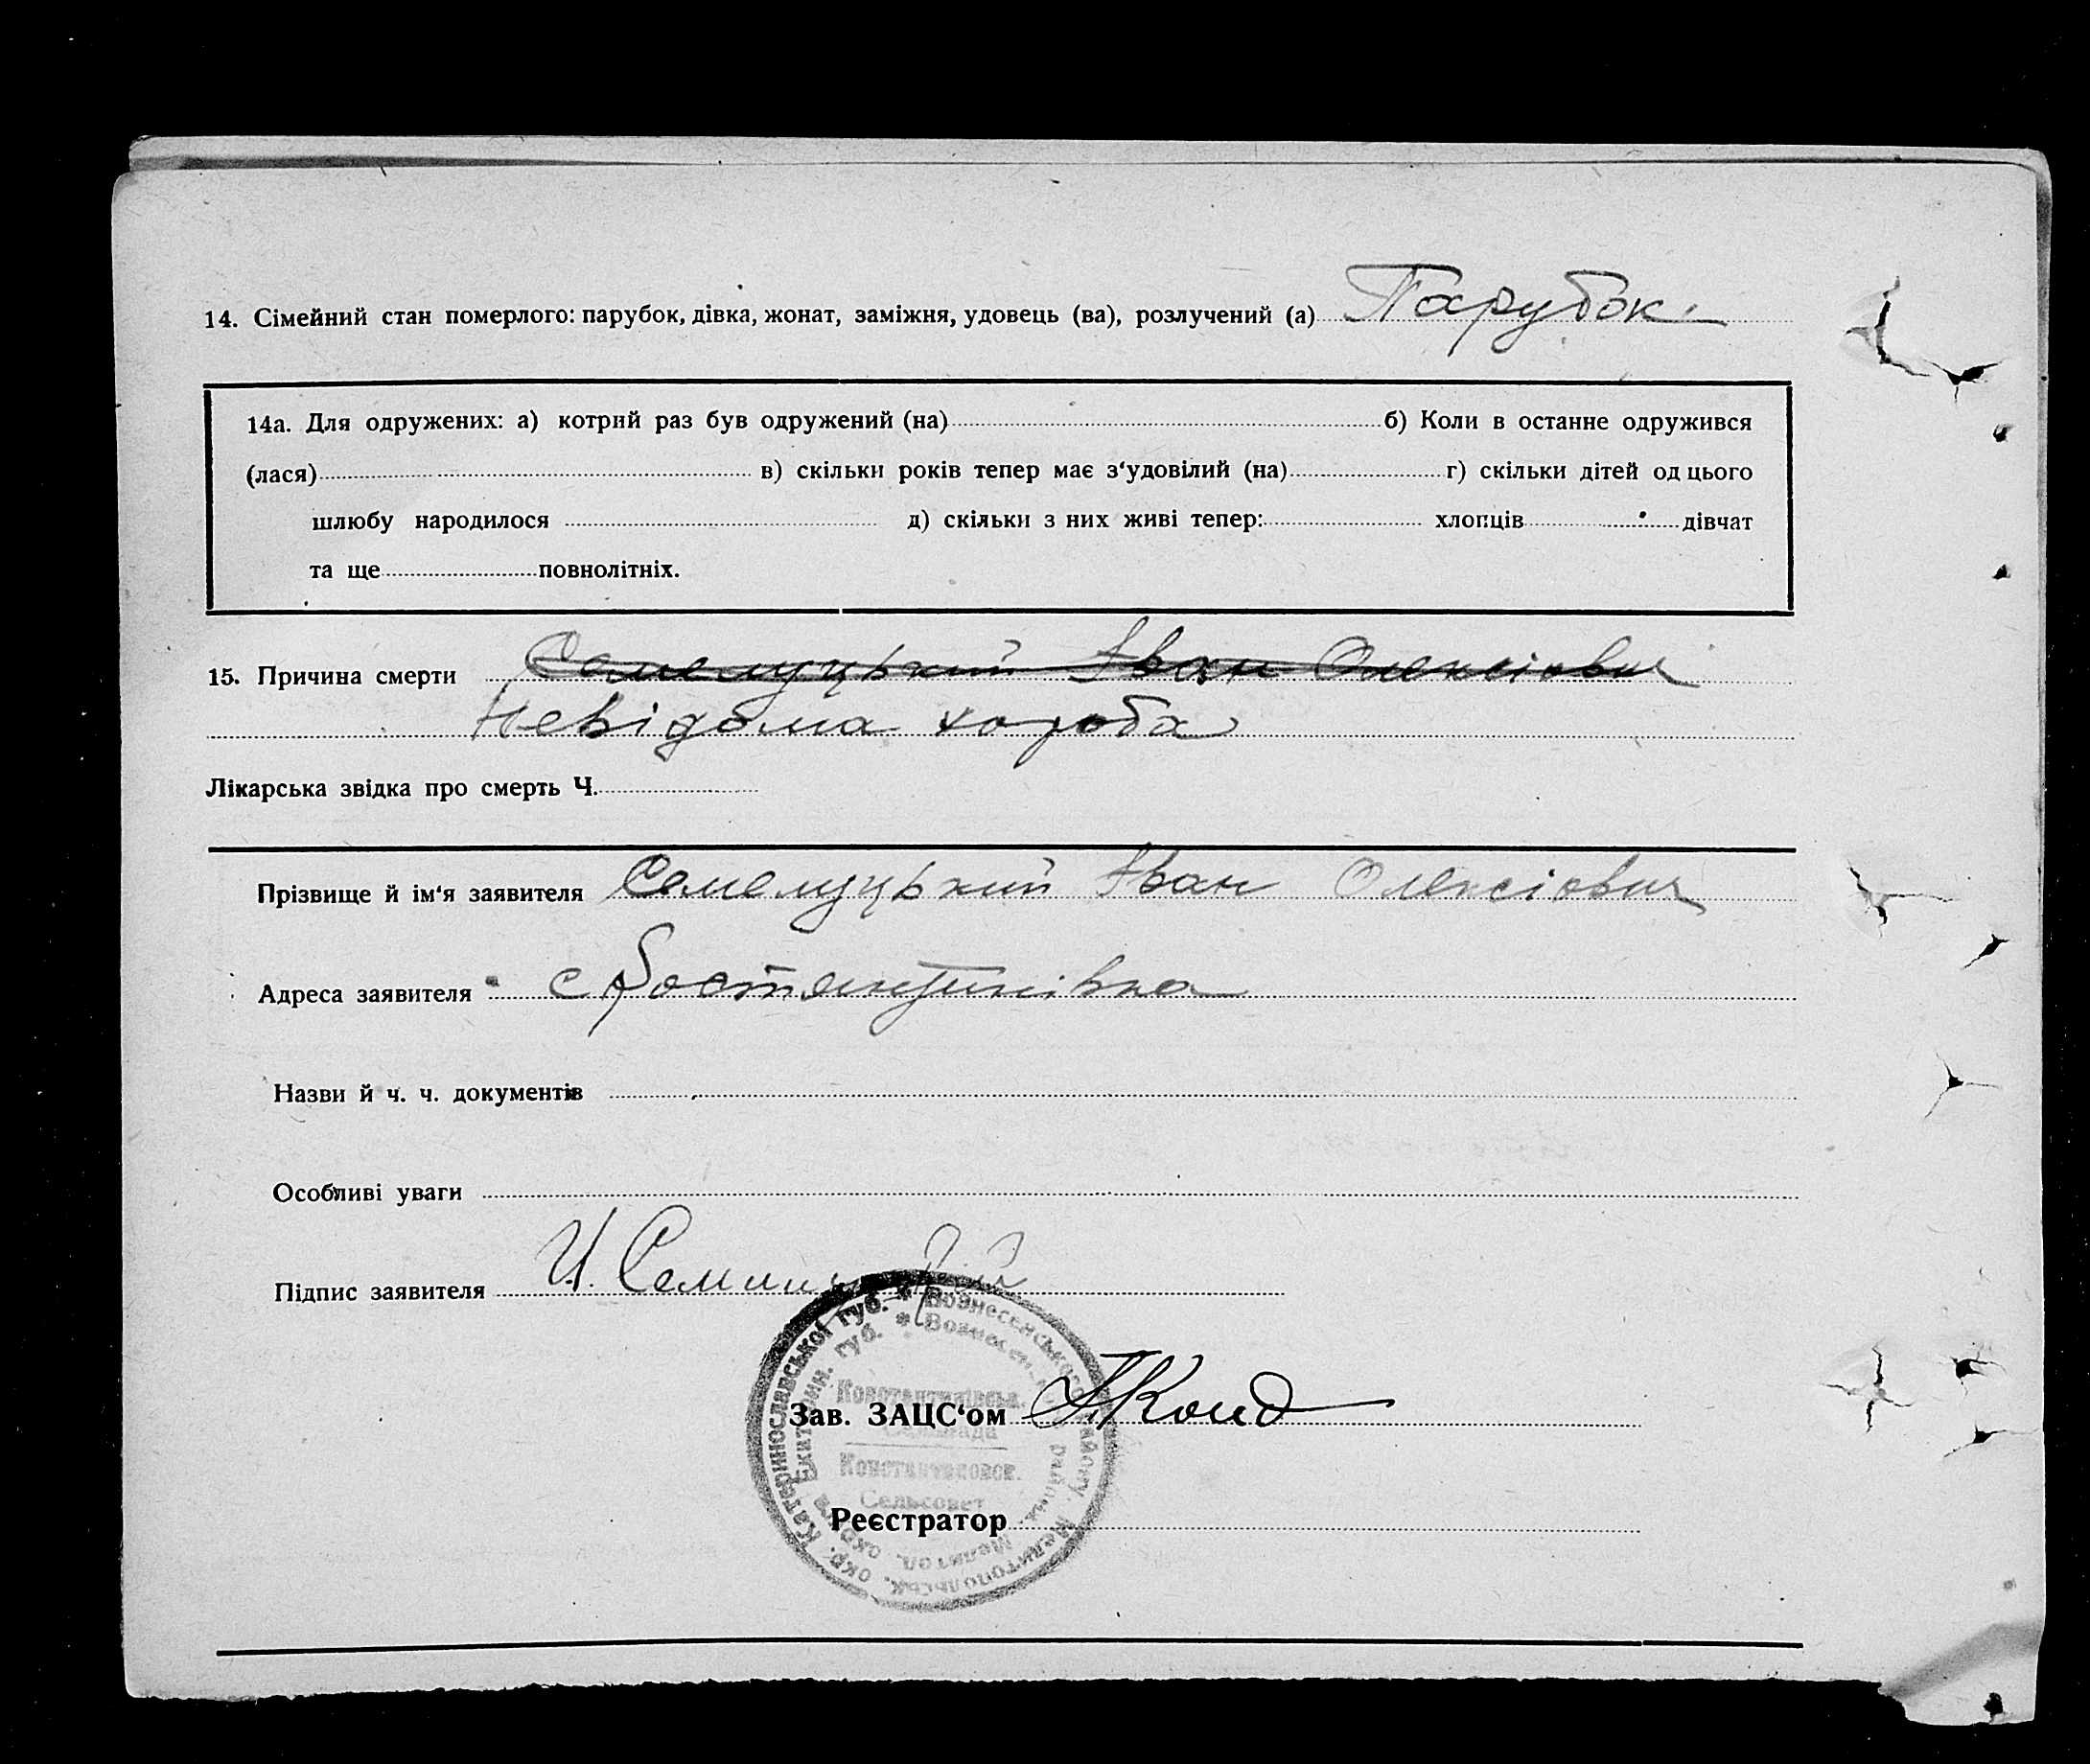 14. Сімейний стан померлого: парубок, дівка, жонат, заміжня, удовець (ва), розлучений (а) Парубок.
14а. Для одружених: а) котрий раз був одружений (на) б) Коли в останне одружився
(лася) в) скільки років тепер має з‘удовілий (на) г) скільки дітей од цього
шлюбу народилося д) скільки з них живі тепер: хлопців дівчат
та ще повнолітніх.
15. Причина смерти Семелуцький Іван Олексіович
Невідома хороба
Лікарська звідка про смерть Ч.
Прізвище й ім‘я заявителя Семелуцький Іван Олексіович
Адреса заявителя с Костянтинівка
Назви й ч. ч. документів
Особливі уваги
Підпис заявителя И.
Зав. ЗАЦС‘ом
Реєстратор
окр. Катеринославської губ. * Вознесенського району, Мелитопольськ.
Екатерин. губ. * Вознесен. района Мелитоп. округа
Константинівська
Сельрада
Константиновск.
Сельсовет